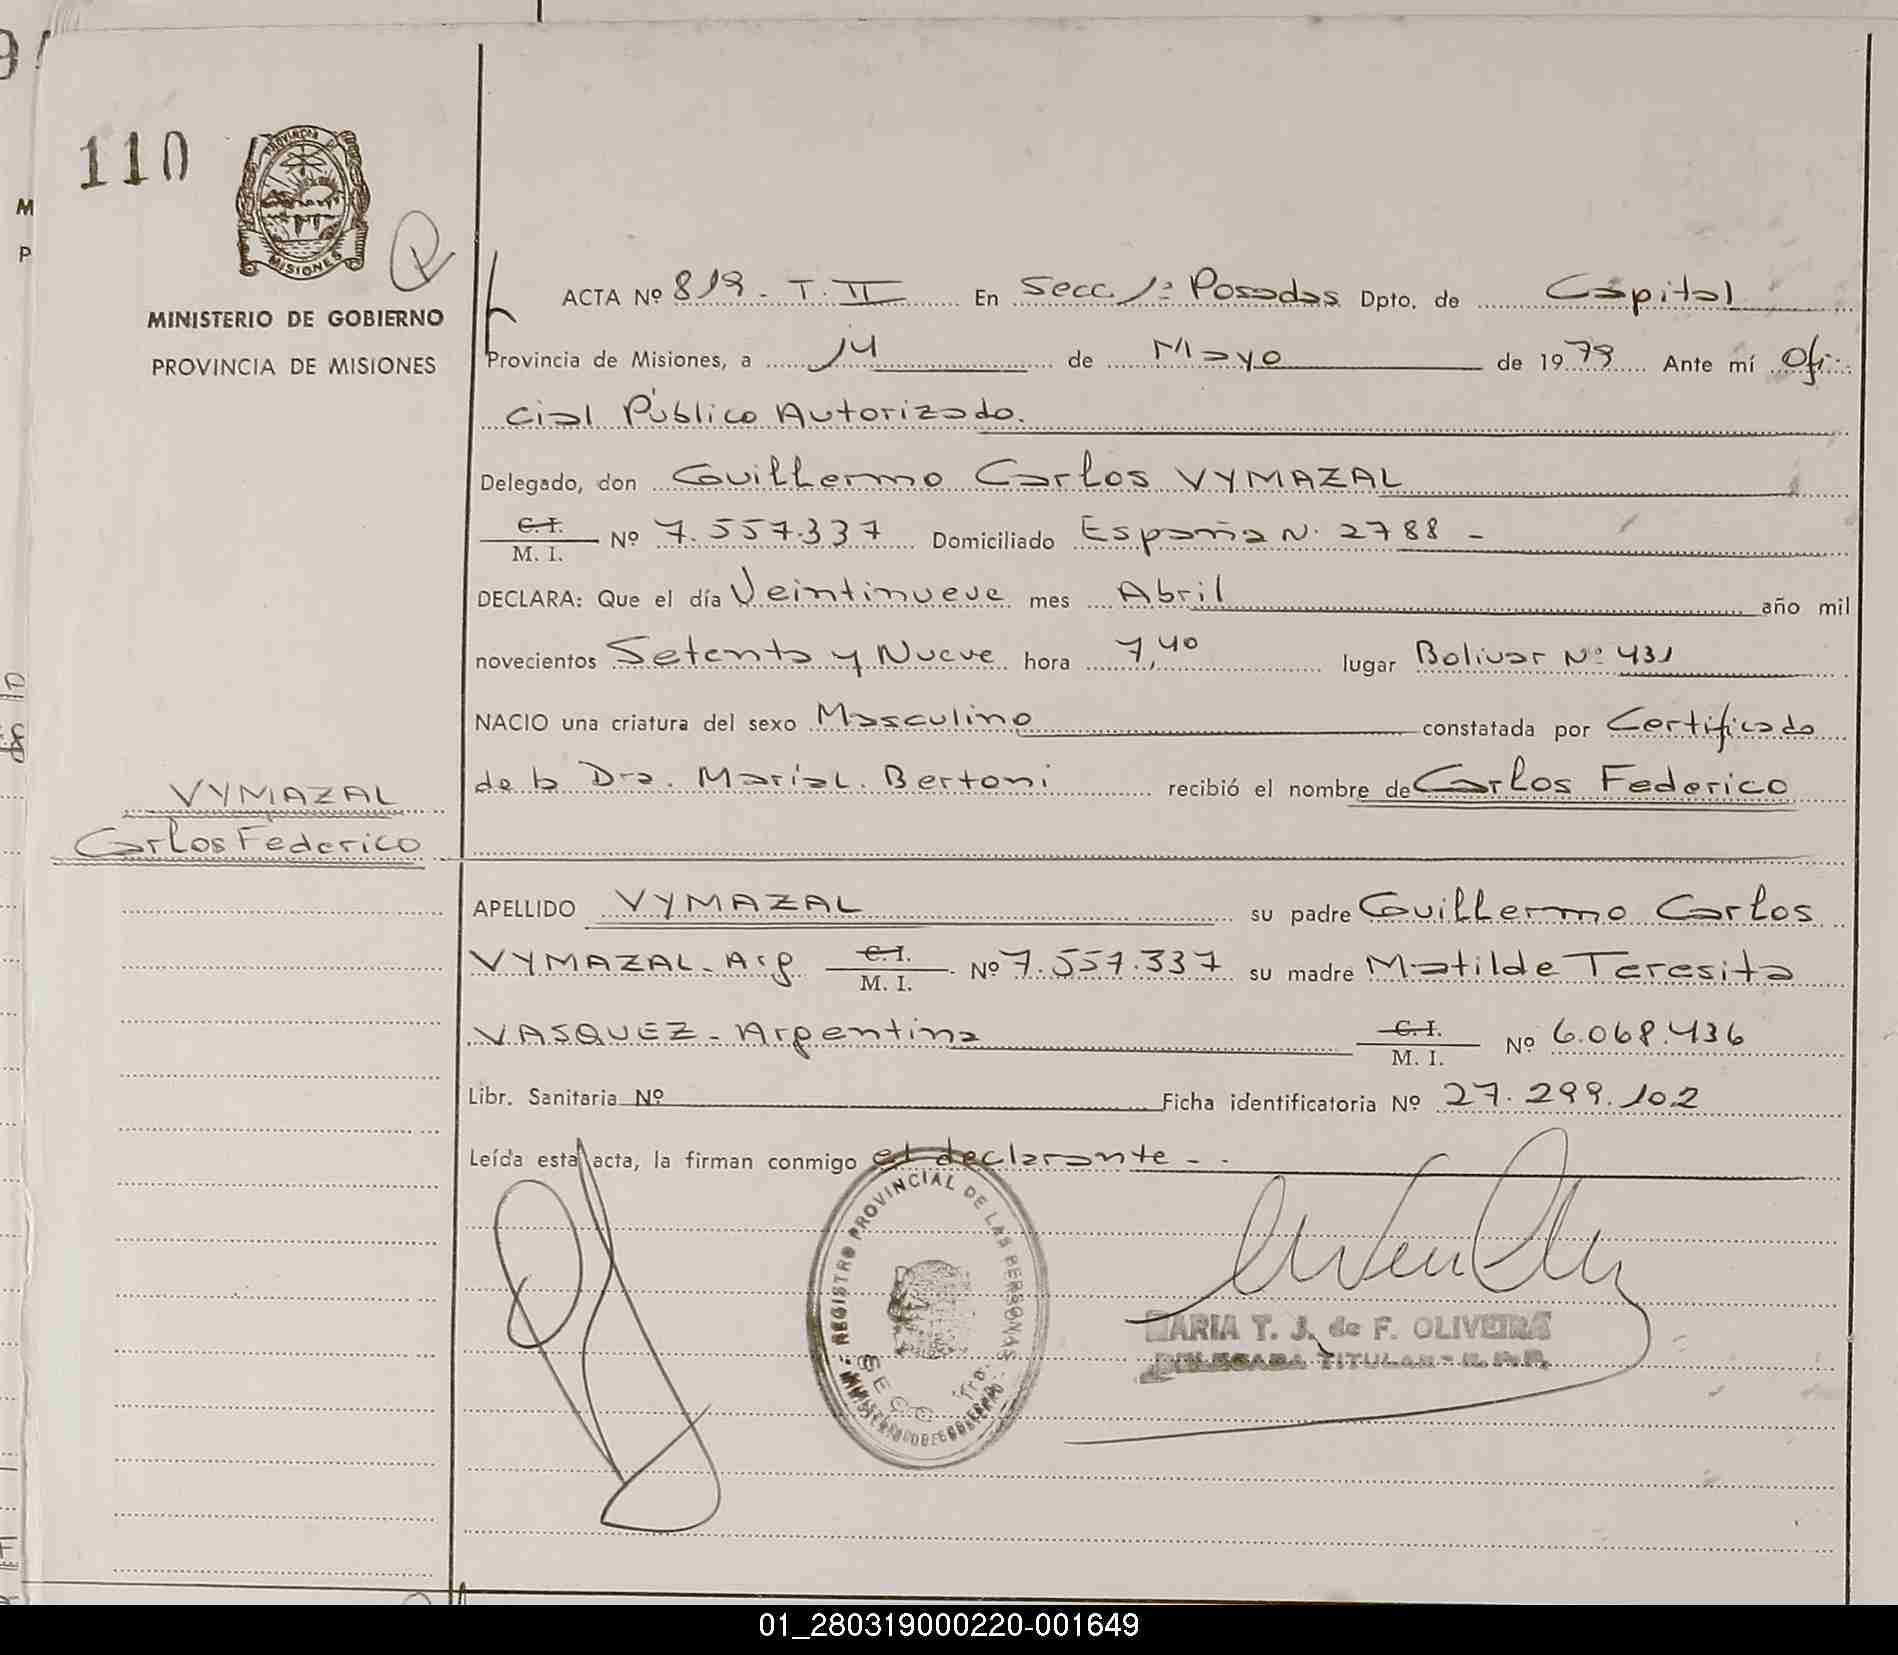 110
PROVINCIA D
MISIONES
MINISTERIO DE GOBIERNO
PROVINCIA DE MISIONES
ACTA Nº 819 - T. II En Secc. 1ª Posadas Dpto. de Capital
Provincia de Misiones, a 14 de Mayo de 1979 Ante mí Ofi-
cial Público Autorizado.
Delegado, don Guillermo Carlos VYMAZAL
C.I.
M. I. Nº 7.557.337 Domiciliado España N. 2788 -
DECLARA: Que el día Veintinueve mes Abril año mil
novecientos Setenta y Nueve hora 7,40 lugar Bolivar Nº 431
NACIO una criatura del sexo Masculino constatada por Certificado
de la Dra. Maria L. Bertoni recibió el nombre de Carlos Federico
VYMAZAL
Carlos Federico
APELLIDO VYMAZAL su padre Guillermo Carlos
VYMAZAL - Arg C.I.
M. I. Nº 7.557.337 su madre Matilde Teresita
VASQUEZ - Argentina C.I.
M. I. Nº 6.068.436
Libr. Sanitaria Nº Ficha identificatoria Nº 27.299.102
Leída esta acta, la firman conmigo el declarante - .
REGISTRO PROVINCIAL DE LAS PERSONAS
SECC. 1ra.
MINISTERIO DE GOBIERNO
MARIA T. J. de F. OLIVEIRA
DELEGADA TITULAR - R. P. P.
01_280319000220-001649